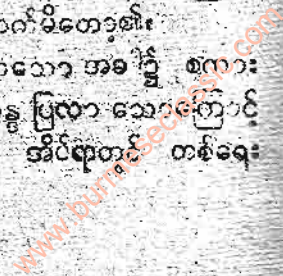 က်မိတော့၏။
သော အခါ၌ စကား
ပြလာ သောကြောင့်
အိပ်ရာတွင် တစ်ရေး
www.burmeseclassic.com